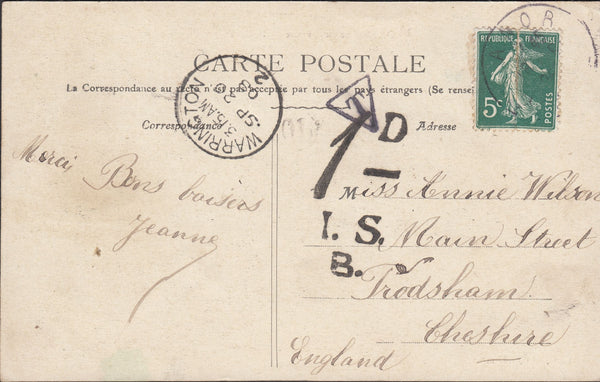 OR
REPUBLIQUE FRANÇAISE
5c
POSTES
CARTE POSTALE
La Correspondance au recto n'est pas acceptée par tous les pays étrangers (Se rensei
Correspondance
Adresse
WARRINGTON
3.15AM
SP 29
08
T
1D
I. S.
B.
Merci
Bons baisers
Jeanne
Miss Annie Wilson
Main Street
Frodsham
Cheshire
England